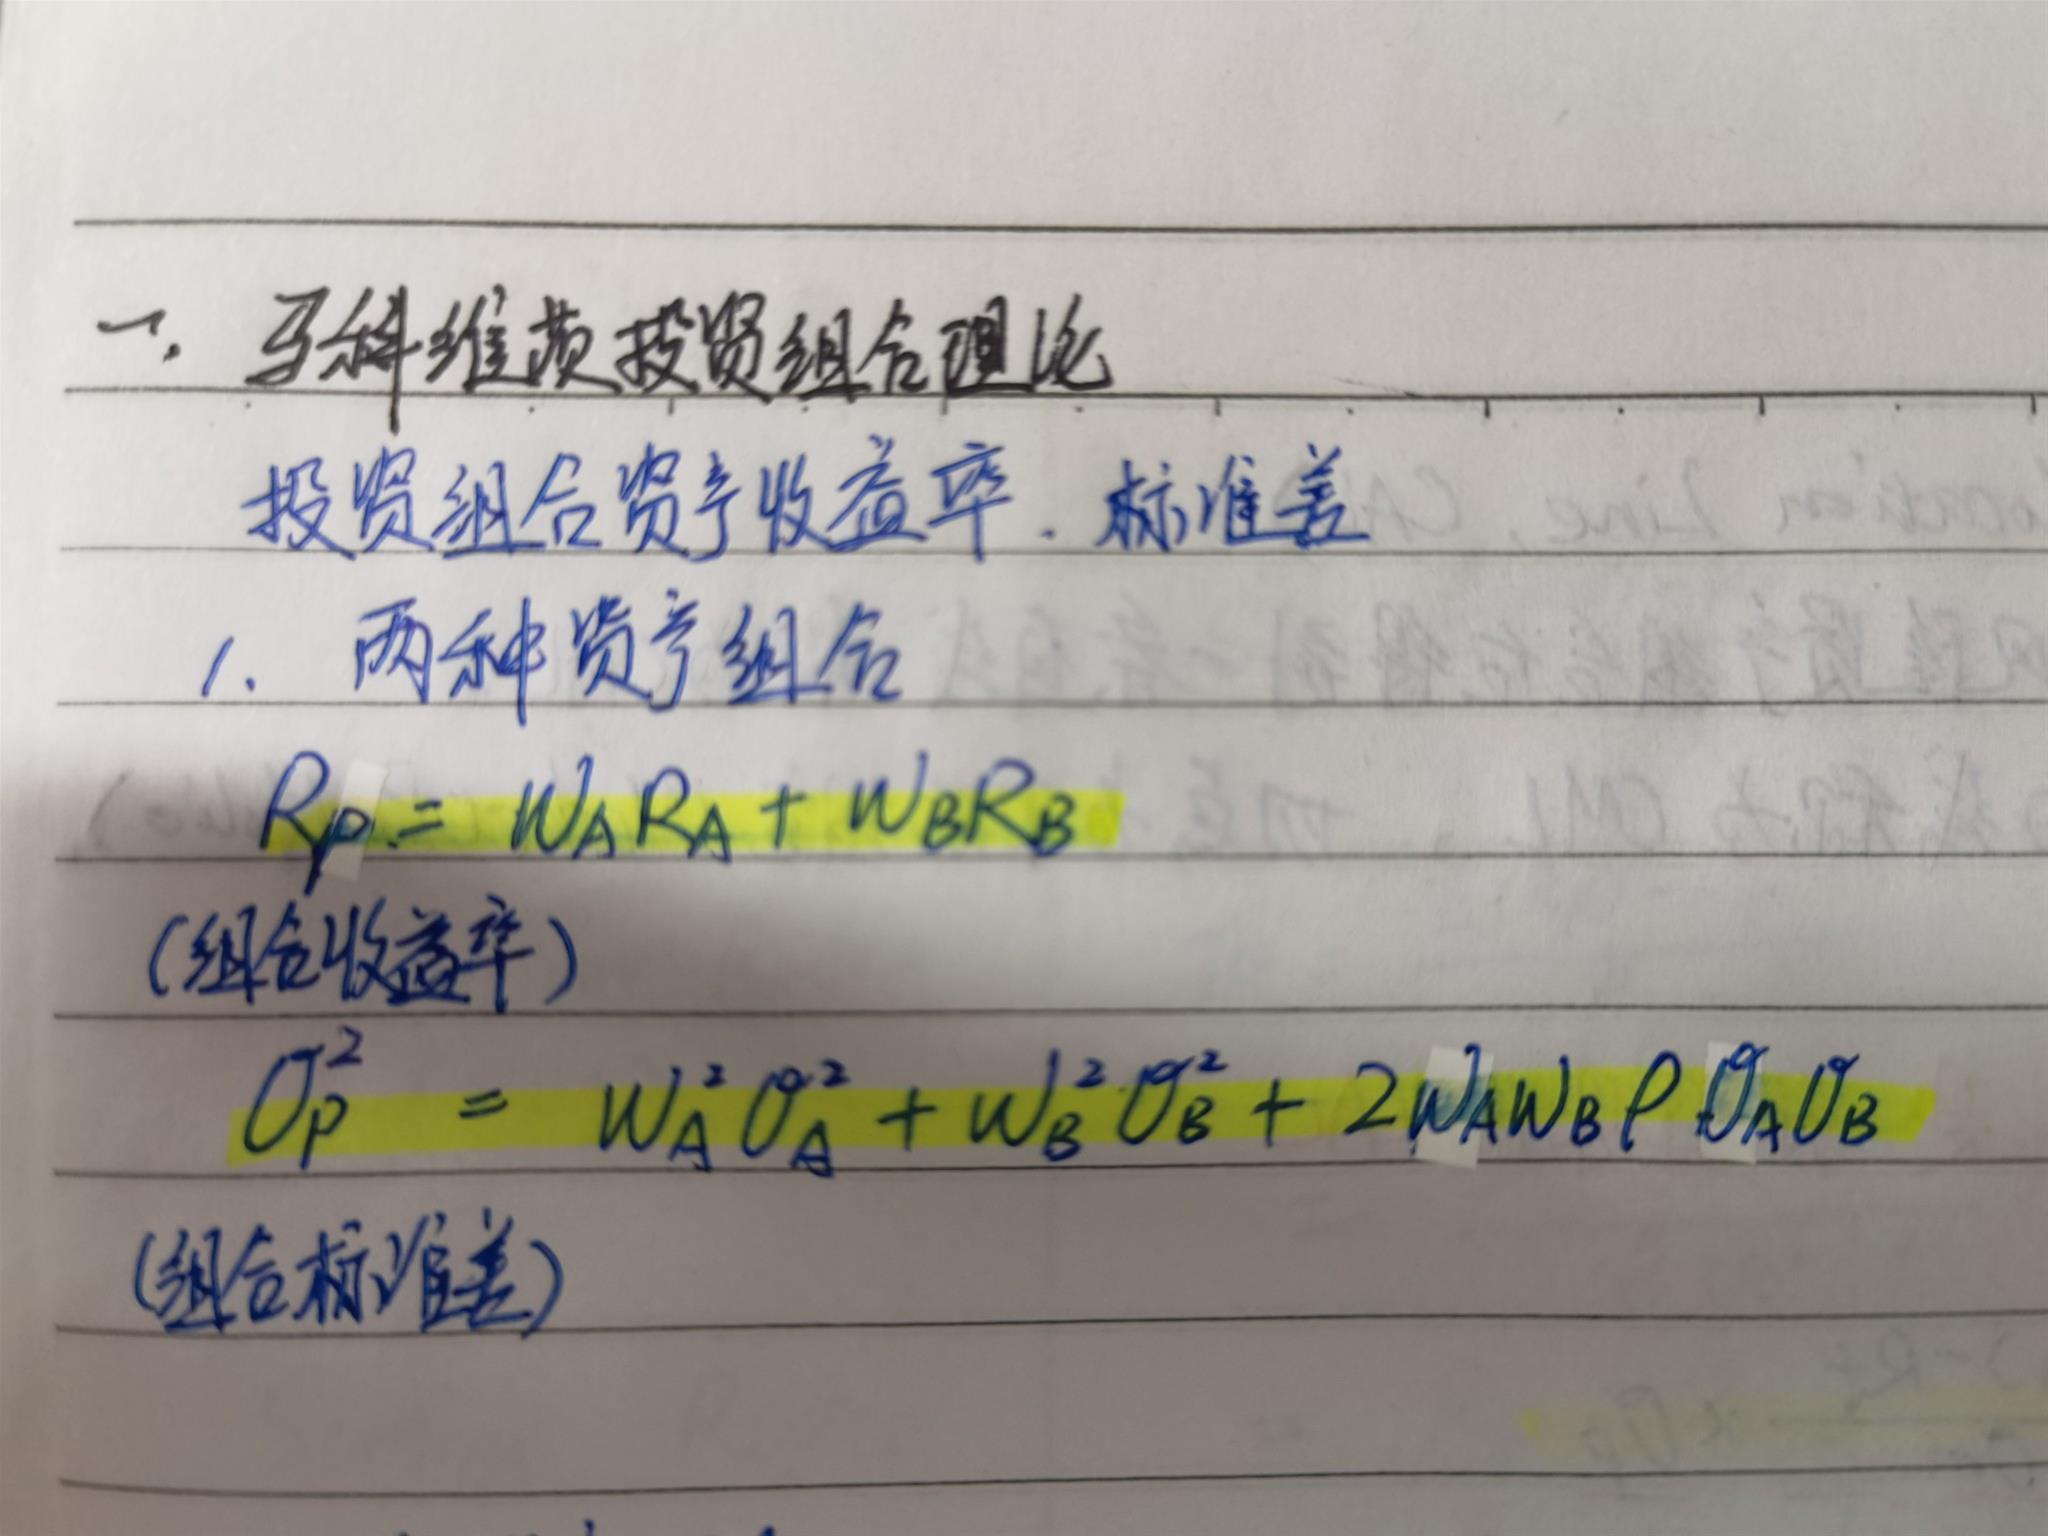 一、马科维茨投资组合理论
投资组合资产收益率、标准差
1. 两种资产组合
Rp = WARA + WBRB
(组合收益率)
σp² = WA²σA² + WB²σB² + 2WAWBρσAσB
(组合标准差)